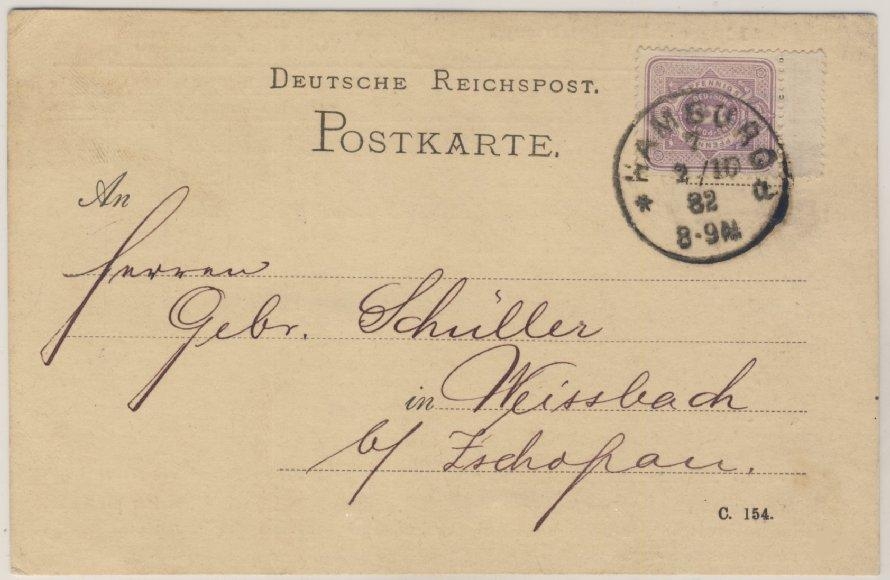 DEUTSCHE REICHSPOST.
POSTKARTE.
HAMBURG
1
2/10
82
8-9N
An
Herren
Gebr. Schüller
in Weissbach
b/ Zschopau.
C. 154.